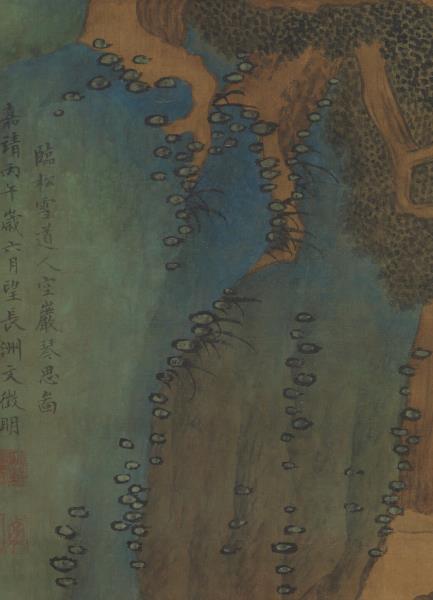 臨松雪道人空巖琴思啚
嘉靖丙午歲六月望長洲文徵明